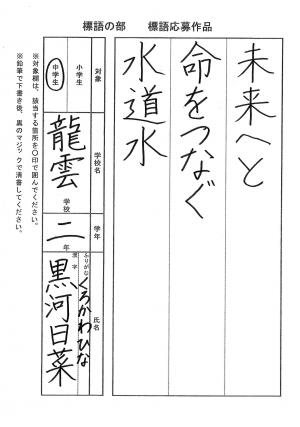 標語の部　標語応募作品
未来へと
命をつなぐ
水道水
対象
小学生
中学生
学校名
龍雲
学校
学年
二
年
氏名
ふりがな
くろかわひな
漢字
黒河日菜
※対象欄は、該当する箇所を〇印で囲んでください。
※鉛筆で下書き後、黒のマジックで清書してください。